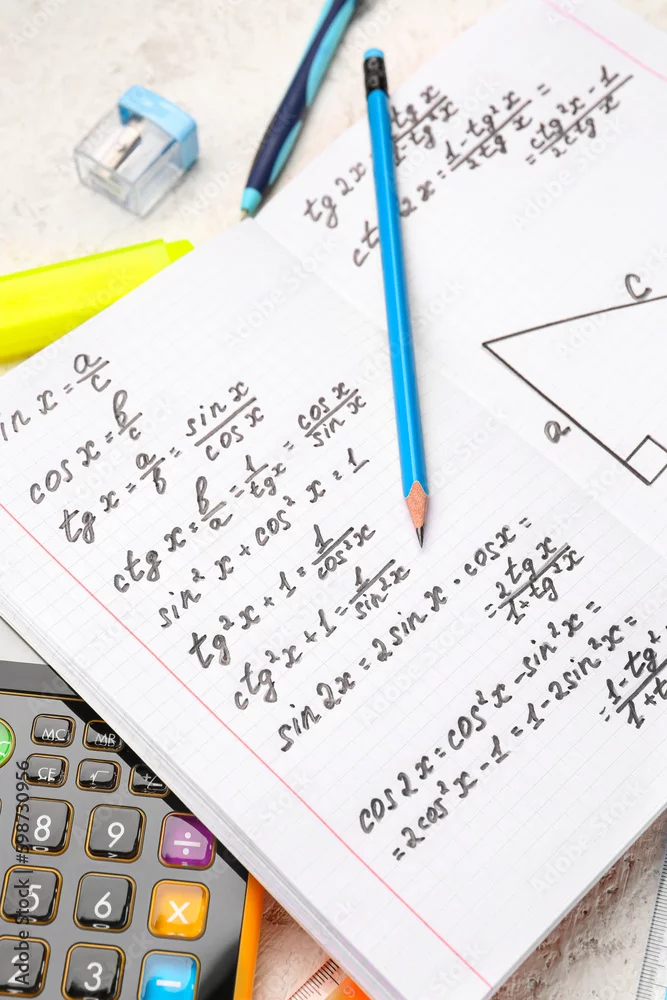 tg2x
tgx
1-tg
ctg2x = 1-tg²x / 2tgx =
= ctg²x-1 / 2ctgx
C
a
inx = a/c
cosx = b/c
tgx = a/b = sinx / cosx
ctgx = b/a = 1/tgx = cosx / sinx
sin²x + cos²x = 1
tg²x + 1 = 1/cos²x
ctg²x + 1 = 1/sin²x
sin2x = 2sinx · cosx =
= 2tgx / 1+tg²x
cos2x = cos²x - sin²x =
= 2cos²x - 1 = 1 - 2sin²x =
= 1-tg² / 1+t
MC MR
CE √ +/-
8 9 ÷
5 6 ×
3 -